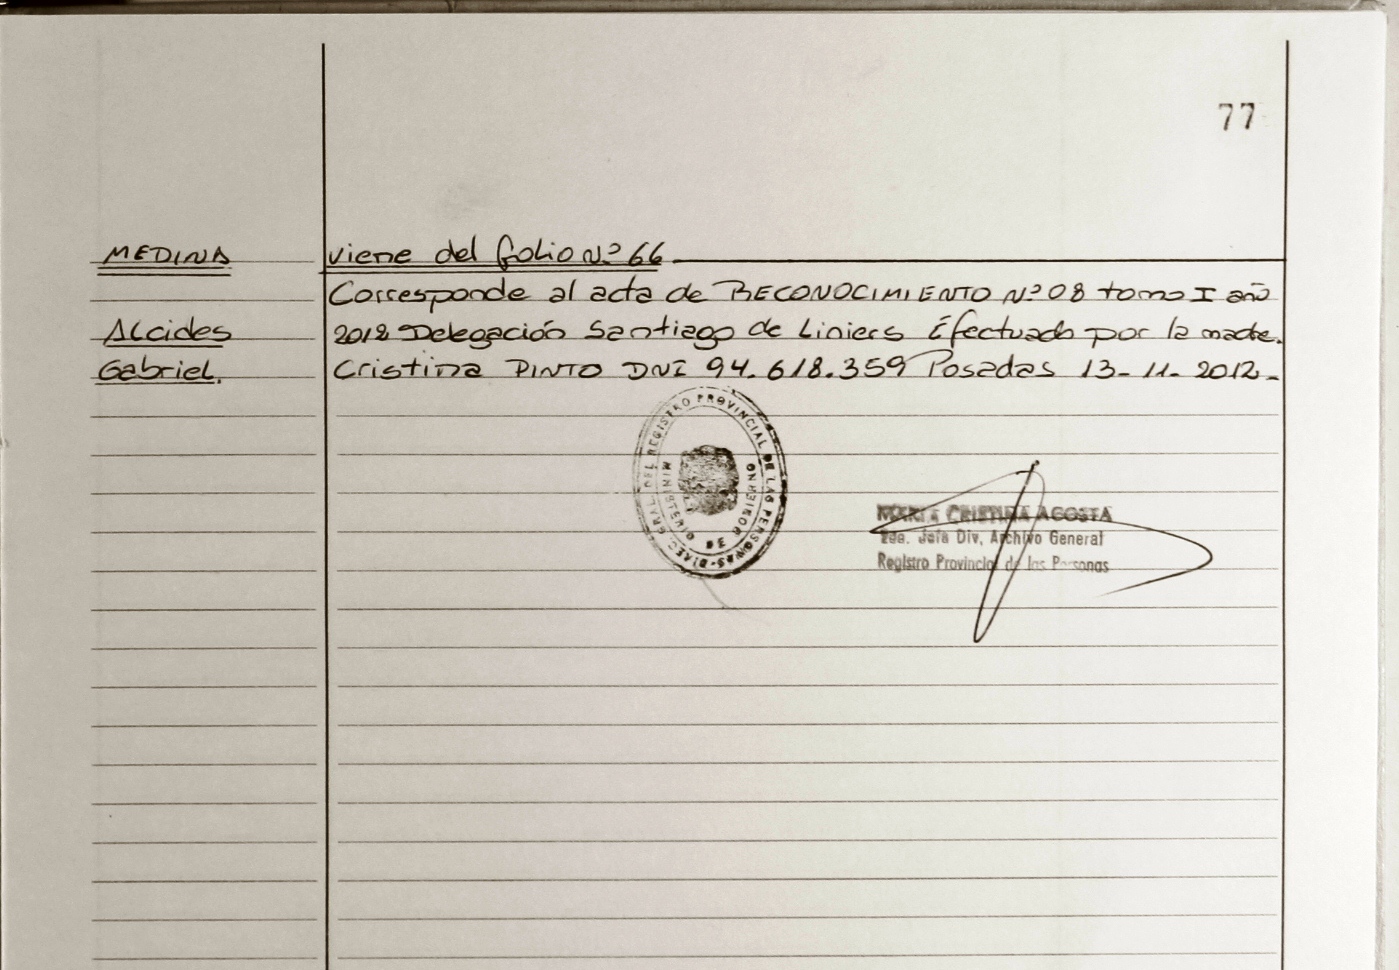 77
MEDINA
viene del folio Nº 66
Corresponde al acta de RECONOCIMIENTO Nº 08 tomo I año
Alcides
2012 Delegación Santiago de Liniers Efectuado por la madre.
Gabriel.
Cristina PINTO DNI 94.618.359 Posadas 13-11-2012-
DIREC. GRAL. DEL REGISTRO PROVINCIAL DE LAS PERSONAS
MINISTERIO DE GOBIERNO
MARIA CRISTINA ACOSTA
Jefa Div. Archivo General
Registro Provincial de las Personas